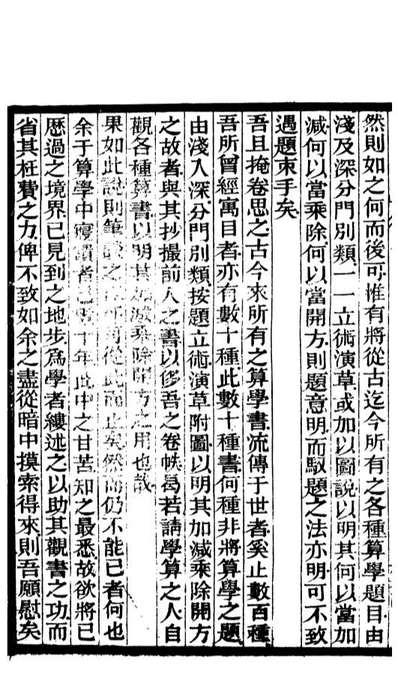 然則如之何而後可惟有將從古迄今所有之各種算學題目由
淺及深分門別類一一立術演草或加以圖說以明其何以當加
減何以當乘除何以當開方則題意明而馭題之法亦明可不致
遇題束手矣
吾且掩卷思之古今來所有之算學書流傳于世者奚止數百種
吾所曾經寓目者亦有數十種此數十種書何種非將算學之題
由淺入深分門別類按題立術演草附圖以明其加減乘除開方
之故者與其抄撮前人之書以侈吾之卷帙曷若請學算之人自
觀各種算書以明其加減乘除開方之用也哉
果如此說則筆 之 從此而止矣然而仍不能已者何也
余于算學中寢饋者已 十年此中之甘苦知之最悉故欲將已
歷過之境界已見到之地步為學者縷述之以助其觀書之功而
省其枉費之力俾不致如余之盡從暗中摸索得來則吾願慰矣